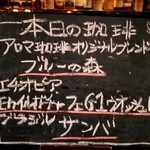 本日の珈琲
アロマ珈琲オリジナルブレンド
ブルーの森
エチオピア
モカイルガチャフェG1ウオッシュド
ブラジル
サンバ